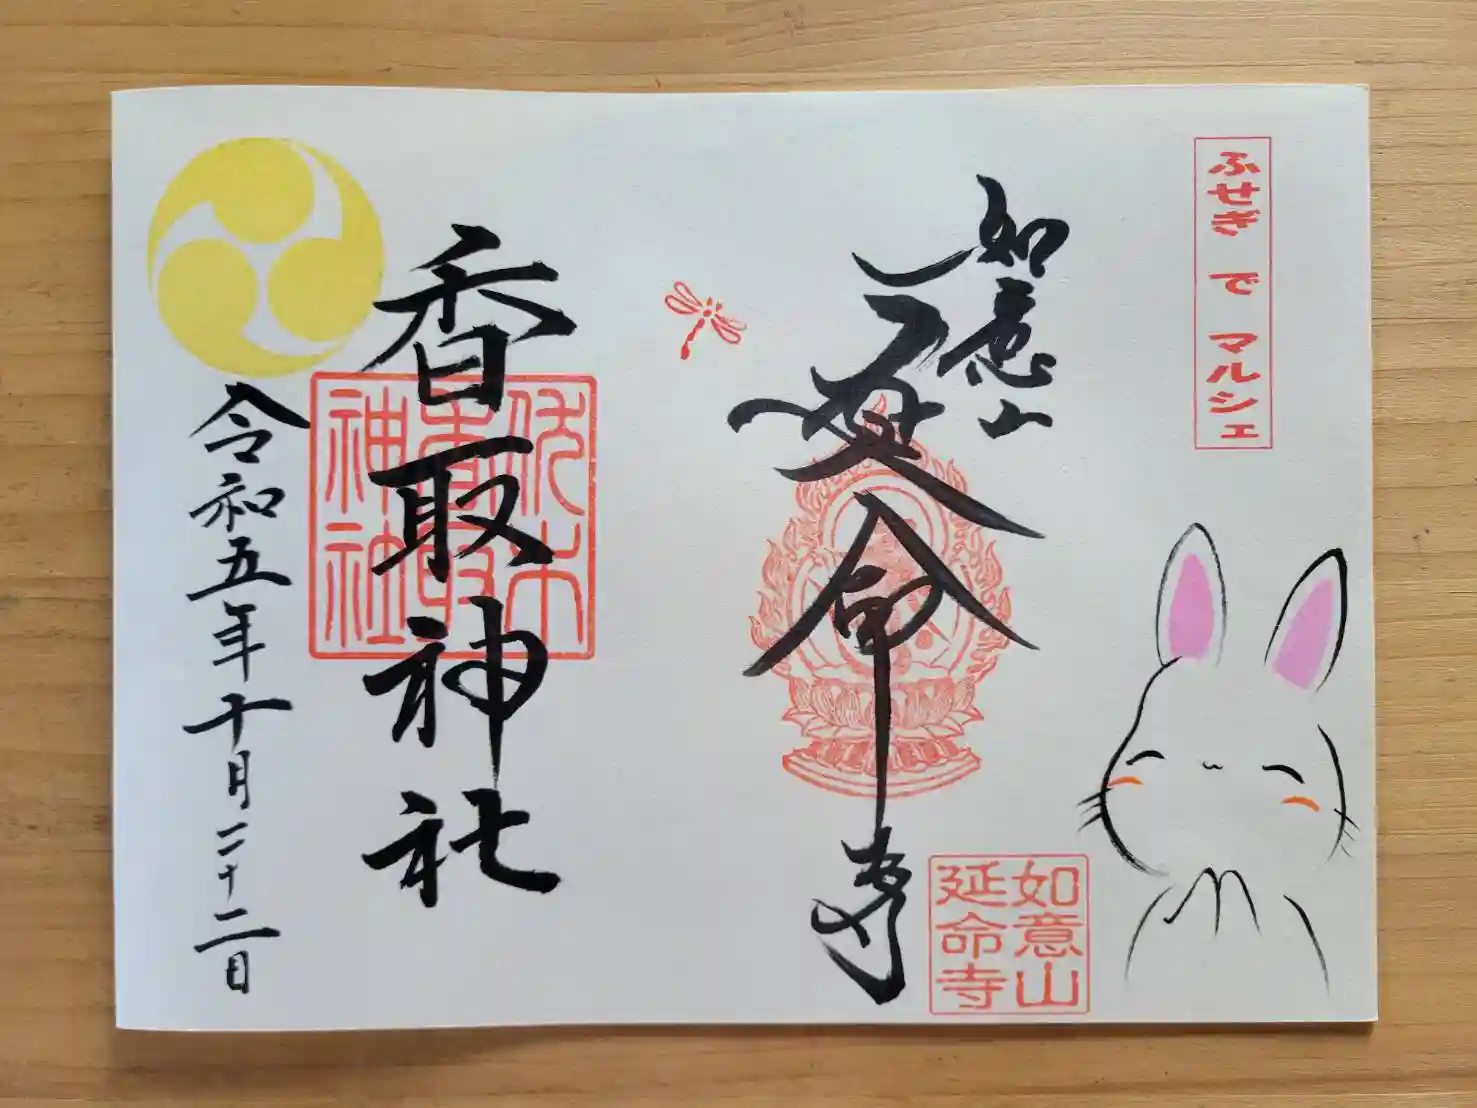 ふせぎ で マルシェ
如意山
延命寺
如意山
延命寺
香取神社
伏木
香取
神社
令和五年十月二十二日